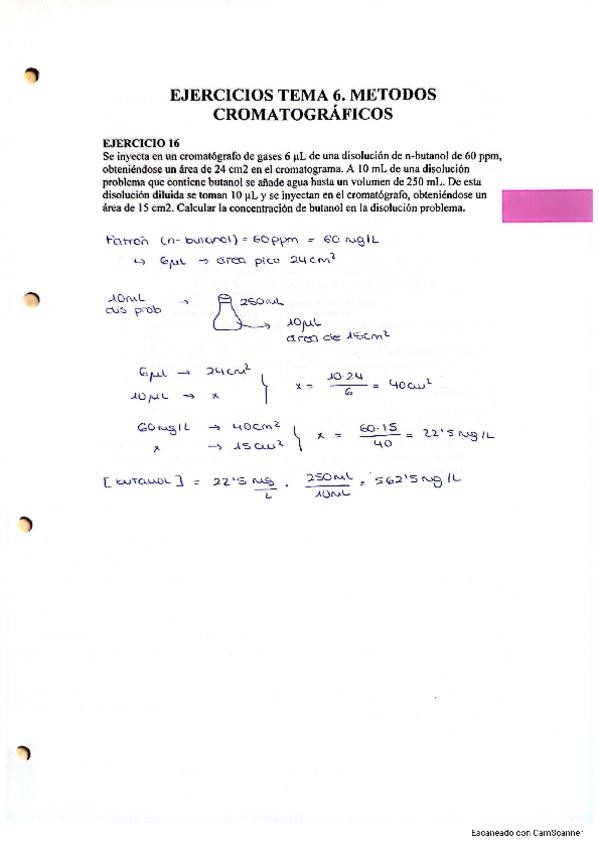 EJERCICIOS TEMA 6. METODOS
CROMATOGRÁFICOS
EJERCICIO 16
Se inyecta en un cromatógrafo de gases 6 µL de una disolución de n-butanol de 60 ppm,
obteniéndose un área de 24 cm2 en el cromatograma. A 10 mL de una disolución
problema que contiene butanol se añade agua hasta un volumen de 250 mL. De esta
disolución diluida se toman 10 µL y se inyectan en el cromatógrafo, obteniéndose un
área de 15 cm2. Calcular la concentración de butanol en la disolución problema.
Patrón (n-butanol) = 60 ppm = 60 mg/L
↳ 6µL → área pico 24 cm²
10mL → 250mL
dis prob
10µL
área de 15cm²
6µL → 24cm²
10µL → x
x = 10·24 / 6 = 40cm²
60mg/L → 40cm²
x → 15cm²
x = 60·15 / 40 = 22'5 mg/L
[butanol] = 22'5 mg/L · 250mL / 10mL = 562'5 mg/L
Escaneado con CamScanner